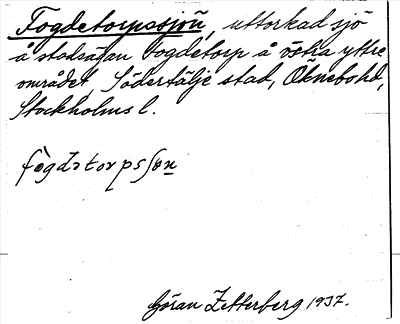 Fogdetorpssjön, uttorkad sjö
å stadsägan Fogdetorp å östra yttre
området, Södertälje stad, Öknebohd,
Stockholms l.
fògdətorpsʃøn
Göran Zetterberg 1937.